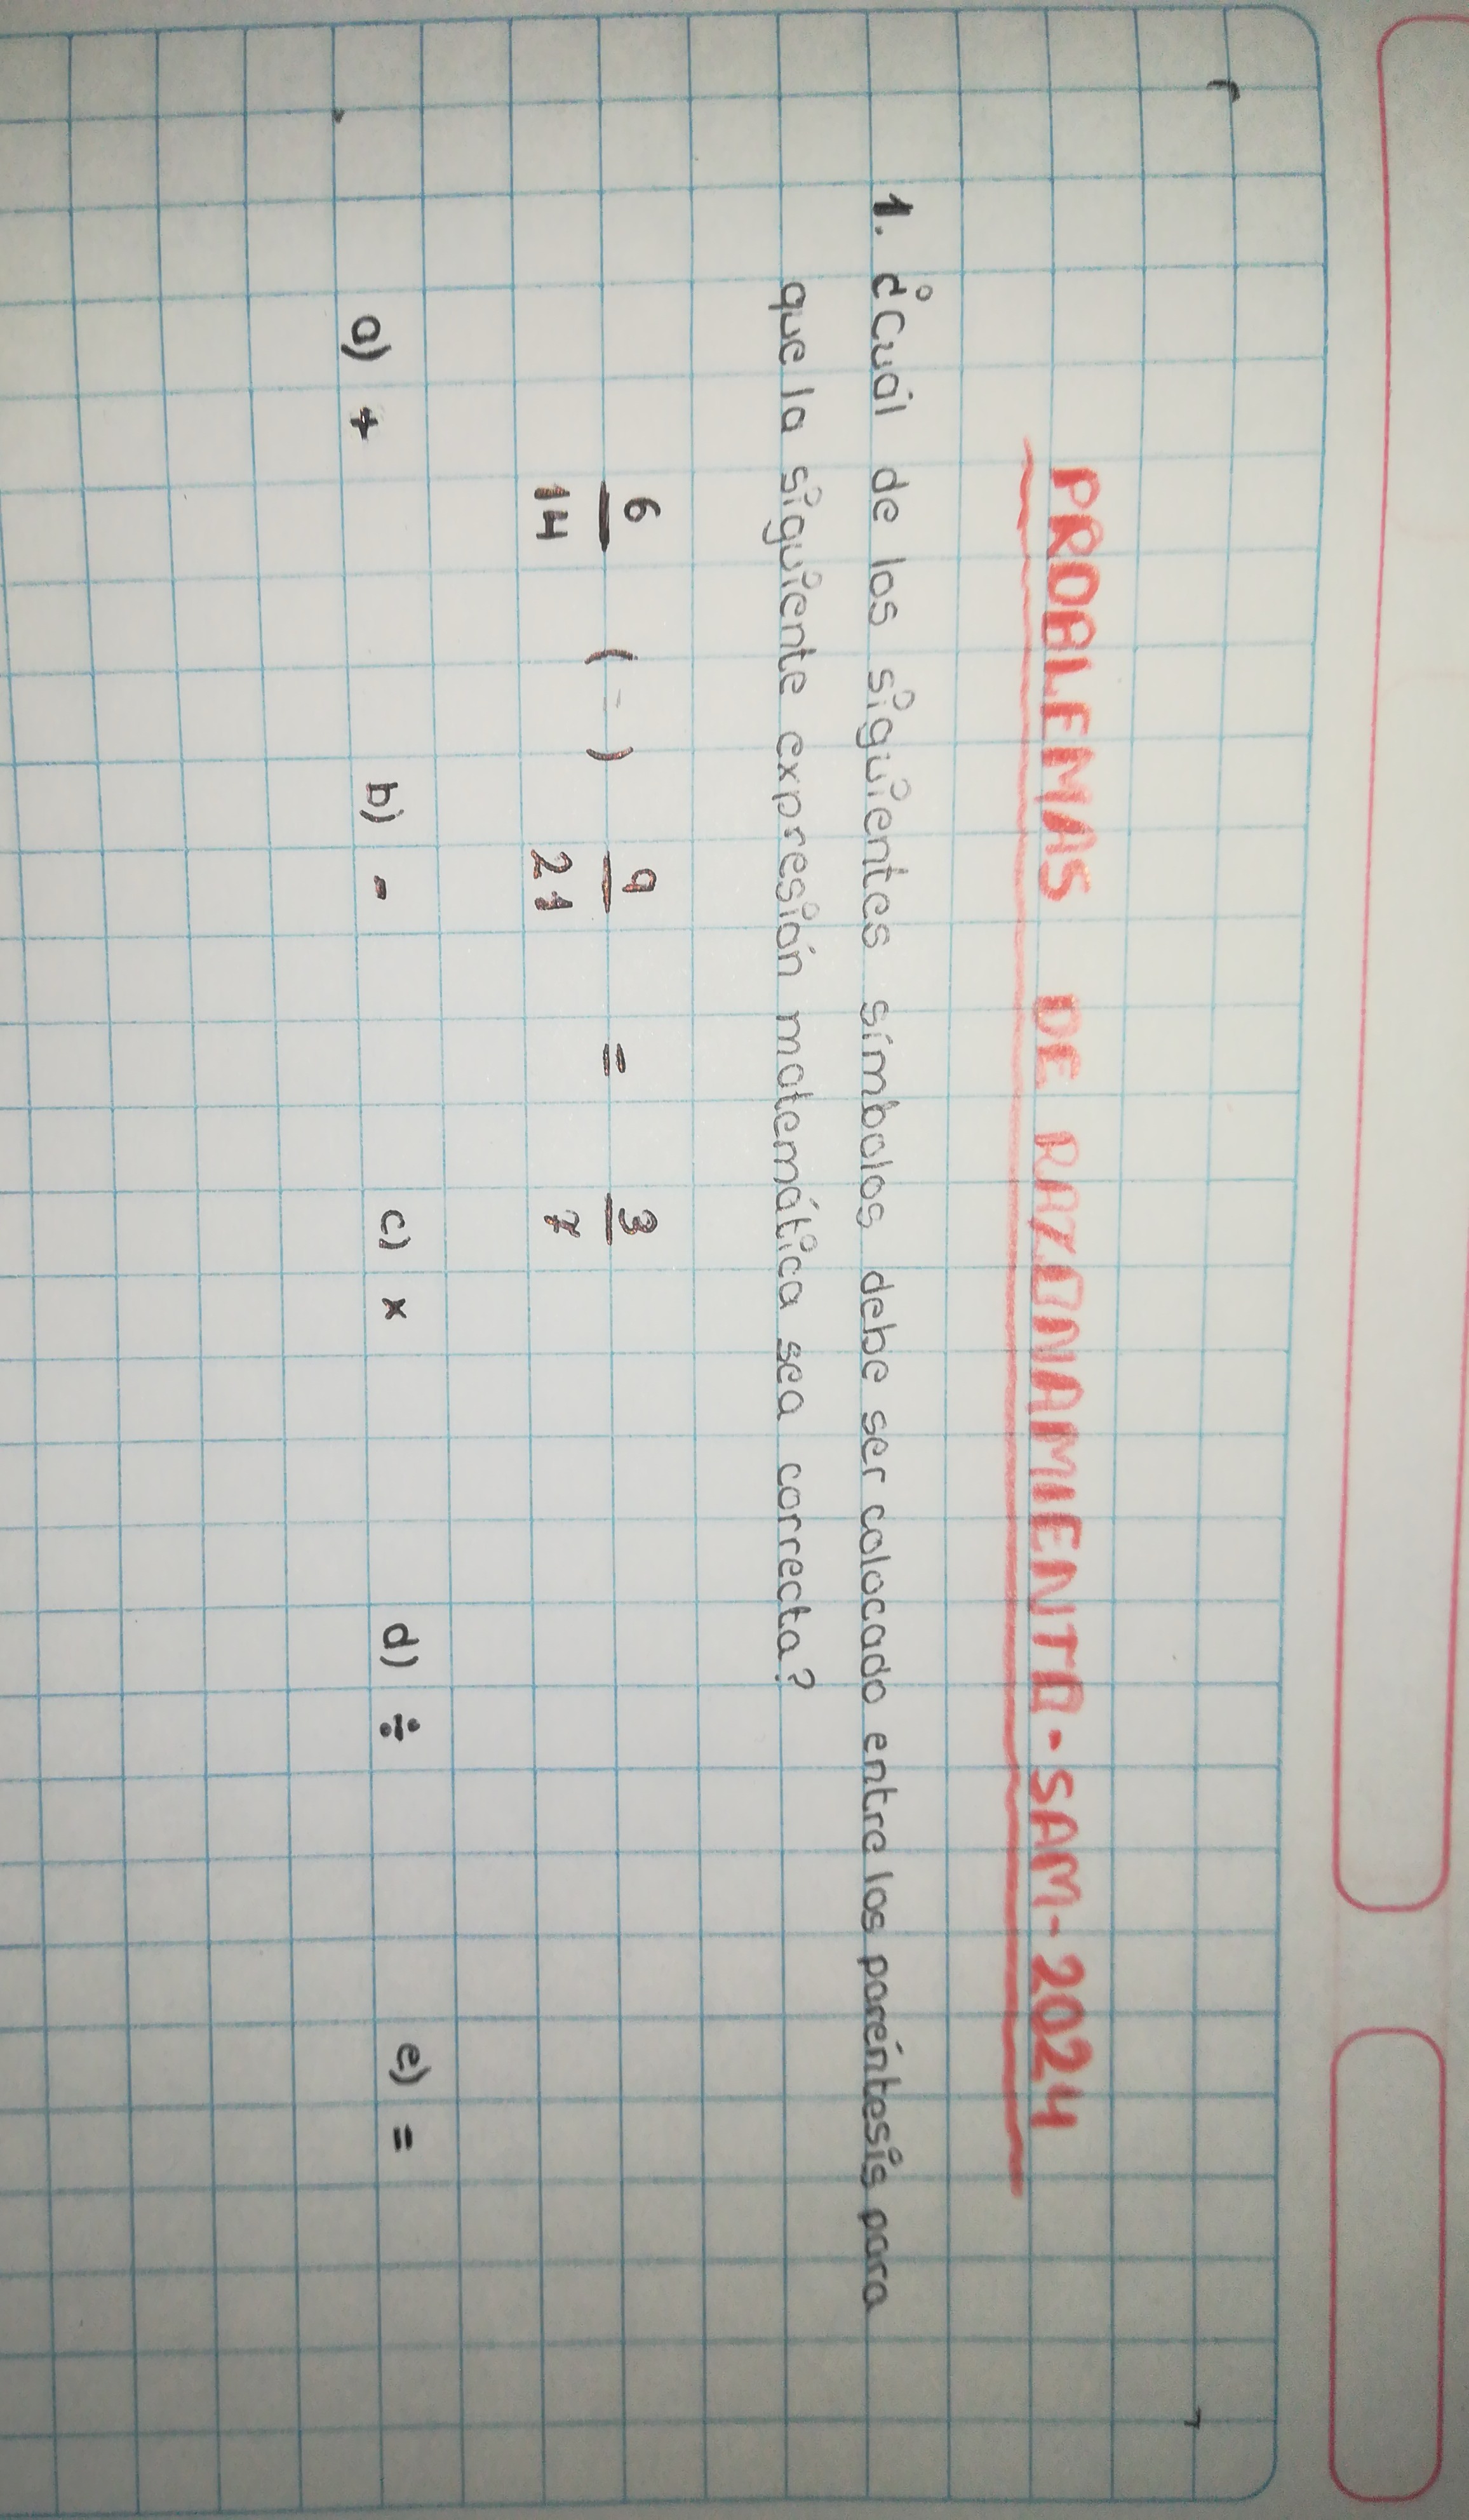 PROBLEMAS DE RAZONAMIENTO - SAM - 2024
1. ¿Cuál de los siguientes símbolos debe ser colocado entre los paréntesis para
que la siguiente expresión matemática sea correcta?
6/14 ( = ) 9/21 = 3/7
a) + b) - c) x d) ÷ e) =